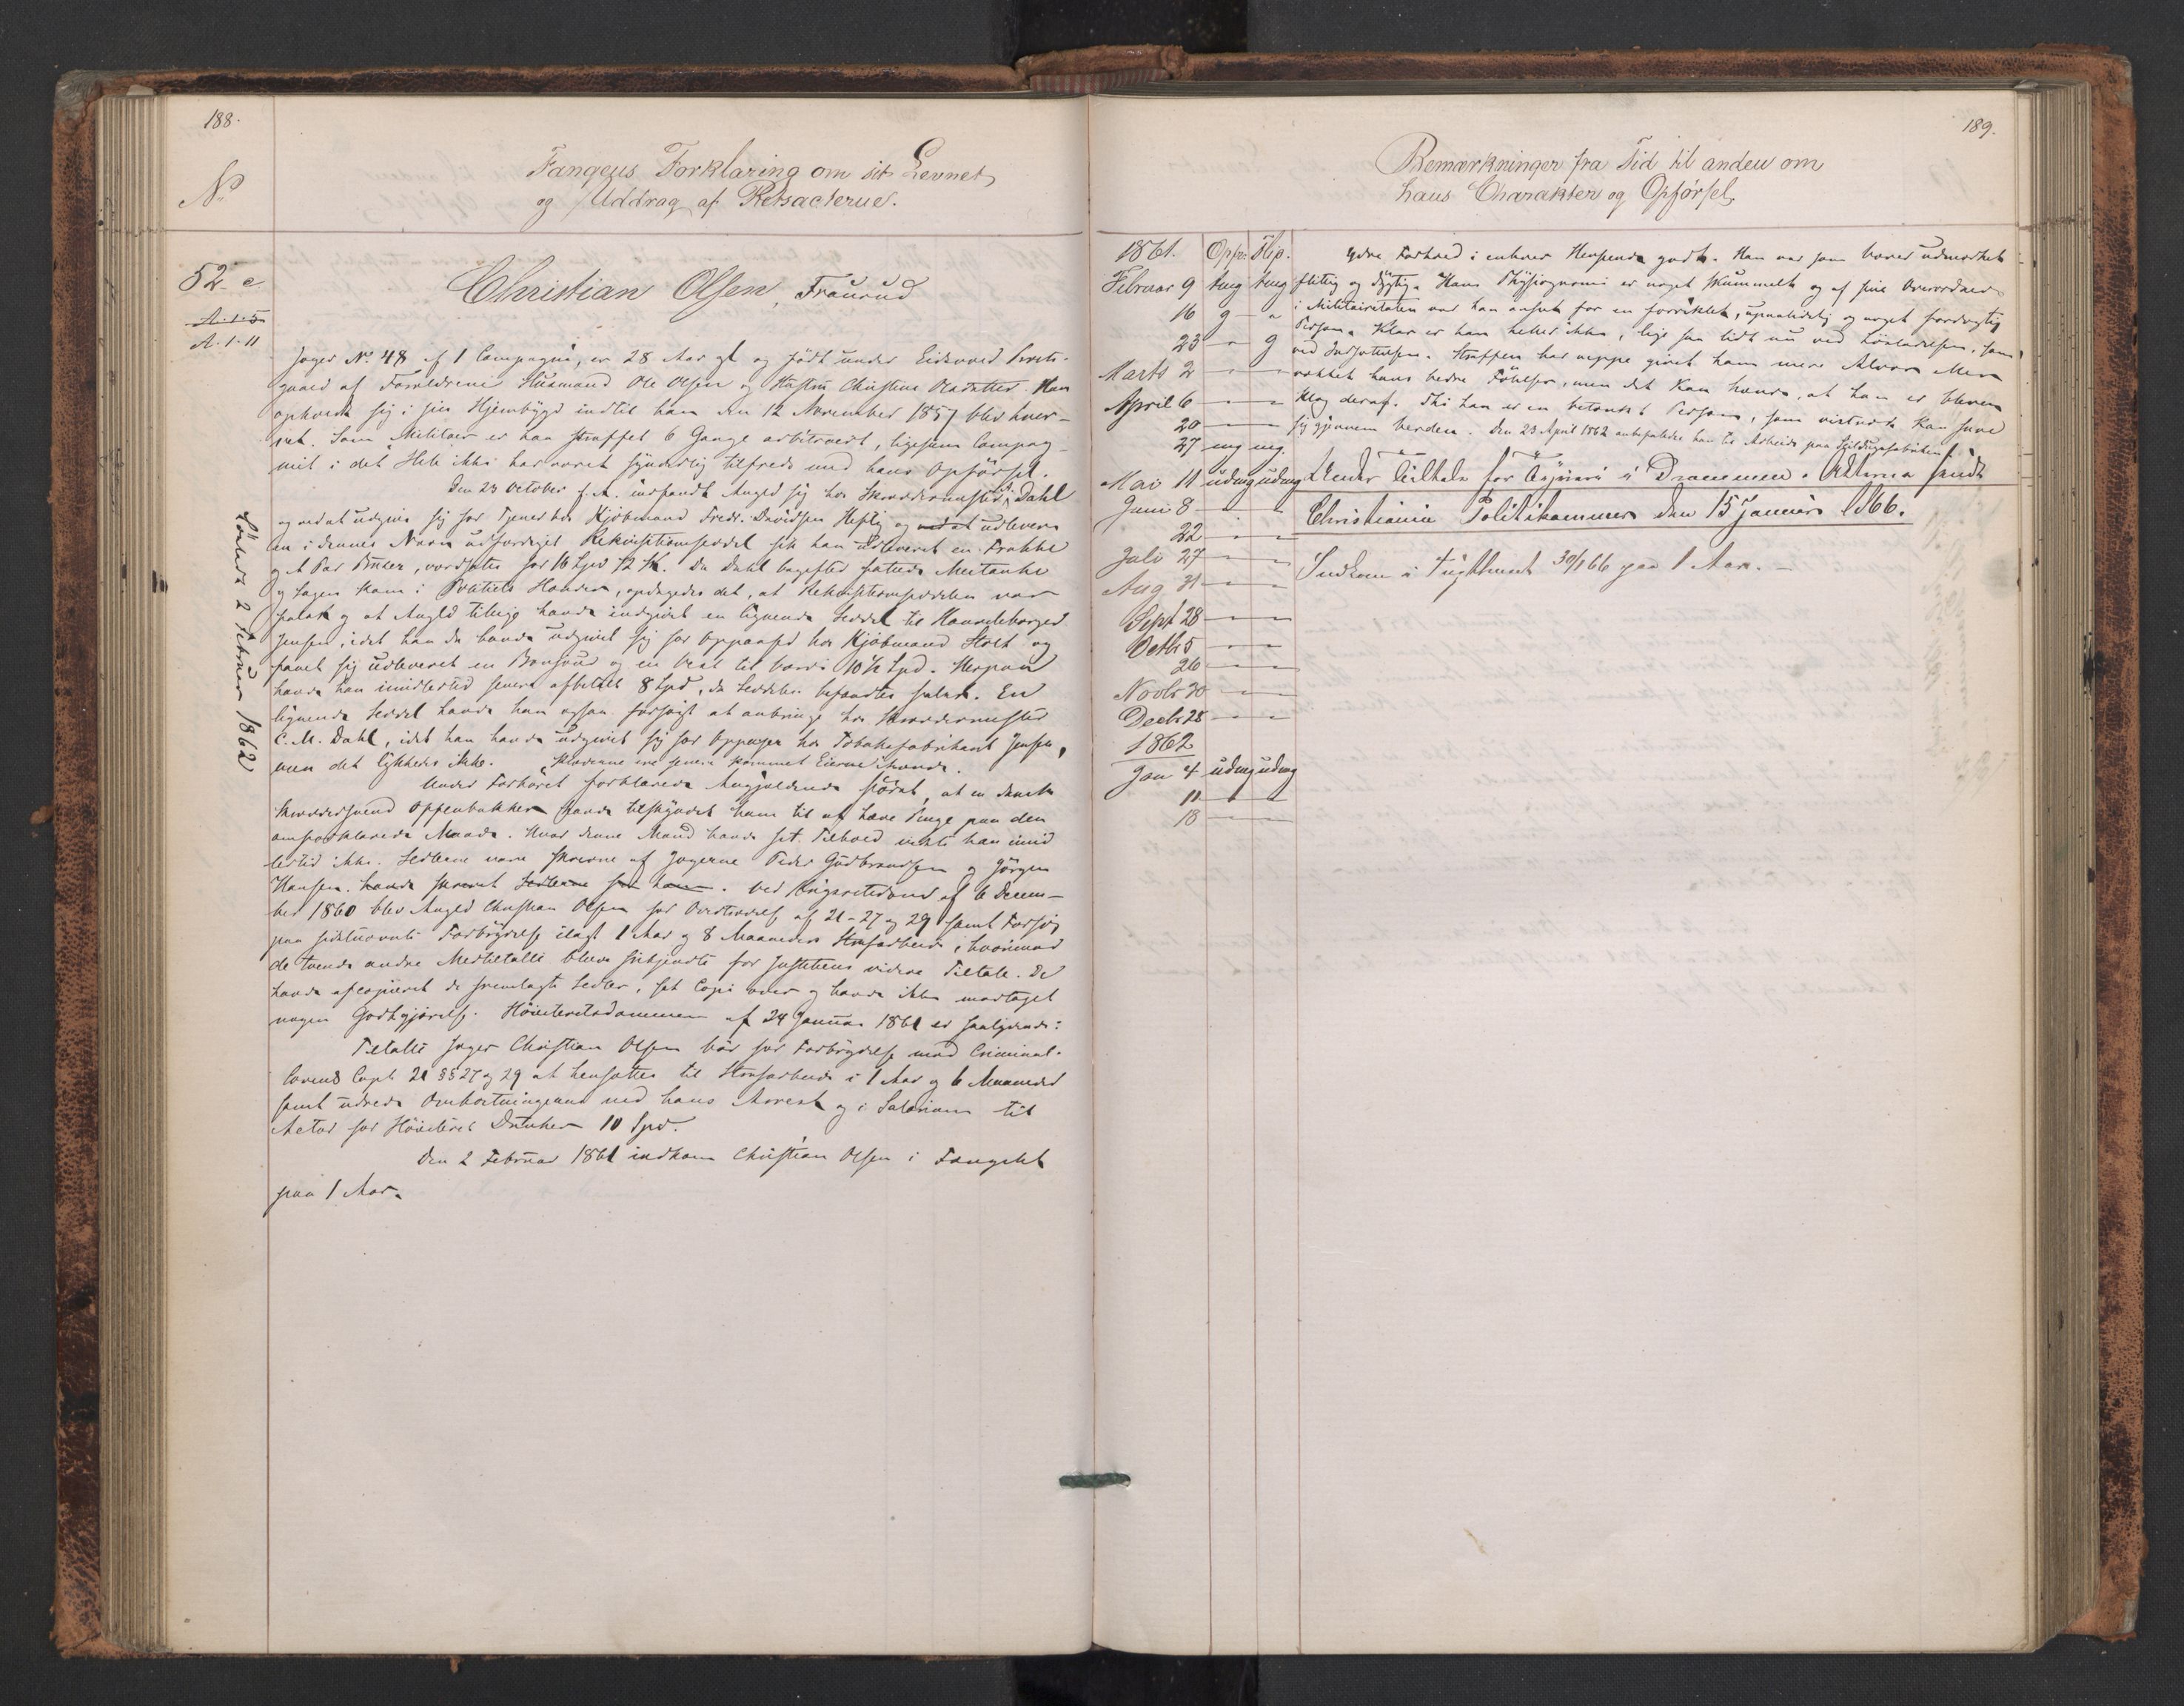 188.
No
Fangens Forklaring om sit Levnet
og Uddrag af Retsacterne.
52. c
A. 1. 5
A. 1. 11
Christian Olsen, Fraurud
Jæger No 48 af 1 Compagni, er 28 Aar gl og født under Eidsvold Præste-
gjæld af Forældrene Husmand Ole Olsen og Hustru Christine Olsdatter. Han
opholdt sig i sin Hjembygd indtil han den 12 November 1857 blev hver-
vet. Som Militær er han straffet 6 Gange arbitrært, ligesom Compag
niet i det Hele ikke har været synderlig tilfreds med hans Opførsel.
Den 23 October f. A. indfandt Angld sig hos Skræddermester A. Dahl
og ved at udgive sig for Tjener hos Kjøbmand Fredr. Davidsen Heftig og ved at udlevere
en i dennes Navn udfærdiget Rekvisitionsseddel fik han udleveret en Frakke
og et Par Buxer, værdsatte for 16 Spd 12 sk. Da Dahl bagefter fattede Mistanke
og Sagen kom i Politiets Hænder, opdagedes det, at Rekvisitionsseddelen var
falsk og at Angld tillige havde indgivet en lignende Seddel til
Jensen, idet han da havde udgivet sig for Oppasser hos Kjøbmand Holst og
faaet sig udleveret en Bonjour og en Vest til Værdi 10½ Spd. Herpaa
havde han imidlertid senere afbetalt 8 Spd, da Seddelen befandtes falsk. En
lignende Seddel havde han ogsaa forsøgt at anbringe hos Skræddermester
C. M. Dahl, idet han havde udgivet sig for Oppasser hos Tobaksfabrikant Jensen,
men det lykkedes ikke. Klæderne ere senere kommet Eierne ihænde.
Under Forhøret forklarede Angjældende først, at en dansk
Skræddersvend Oppenbakken havde tilskyndet ham til at lave Penge paa den
omforklarede Maade. Hvor denne Mand havde sit Tilhold vidste han imid
lertid ikke. Sedlerne vare skrevne af Jægerne Peder Gudbrandsen og Jørgen
Hansen. havde skrevet Sedlerne for ham. Ved Krigsretsdom af 6 Decem-
ber 1860 blev Angld Christian Olsen for Overtrædelse af 21-27 og 29 samt Forsøg
paa sidstnævnte Forbrydelse ilagt 1 Aar og 8 Maaneders Strafarbeide, hvorimod
de tvende andre Medtiltalte bleve frikjendte for Justitiens videre Tiltale. De
havde afcopieret de fremlagte Sedler, sat Copi over og havde ikke modtaget
nogen Godtgjørelse. Høiesteretsdommen af 24 Januar 1861 er saalydende:
Tiltalte Jæger Christian Olsen bør for Forbrydelse mod Criminal-
lovens Capt. 21 §§ 27 og 29 at hensættes til Strafarbeide i 1 Aar og 6 Maaneder
samt udrede Omkostningerne ved hans Arrest og i Salarium til
Actor for Høiesteret Dunker 10 Spd.
Den 2 Februar 1861 indkom Christian Olsen i Fængslet
paa 1 Aar.
Løsladt 2 Februar 1862
189.
Bemærkninger fra Tid til anden om
hans Charakter og Opførsel.
1861. Opfør. Flip.
Februar 9 tmg tmg
16 g — "
23 — " g
Marts 2 — " —
April 6 — " —
20 — " —
27 mg mg.
Mai 11 udmg udmg
Juni 8 — " —
22 — " —
Juli 27 — " —
Aug 31 — " —
Sept 28 — " —
Octbr 5 — " —
26 — " —
Novbr 30 — " —
Decbr 28 — " —
1862
Jan 4 udmg udmg
11 — " —
18 — " —
Ydre Forhold i enhver Henseende godt. Han var som Væver udmærket
flittig og dygtig. Hans Physiognomi er noget skummelt og af sine Overordnede
i Militairetaten var han anseet for en forviklet, upaalidelig og noget fordægtig
Person. Klar er han heller ikke, lige saa lidt nu ved Løsladelsen, som
ved Indsættelsen. Straffen har neppe givet ham mere Alvor eller
vækket hans bedre Følelser, men det kan hænde, at han er bleven
klog deraf. Thi han er en betænkt Person, som vistnok kan snoe
sig gjennem Verden. Den 23 April 1862 anbefaledes han til Arbeide paa Seildugsfabriken
Under Tiltale for Tyveri i Drammen. Akterne sendt
Christiania Politikammer den 15 Januar 1866.
Indkom i Tugthuset 30/1 66 paa 1 Aar. —